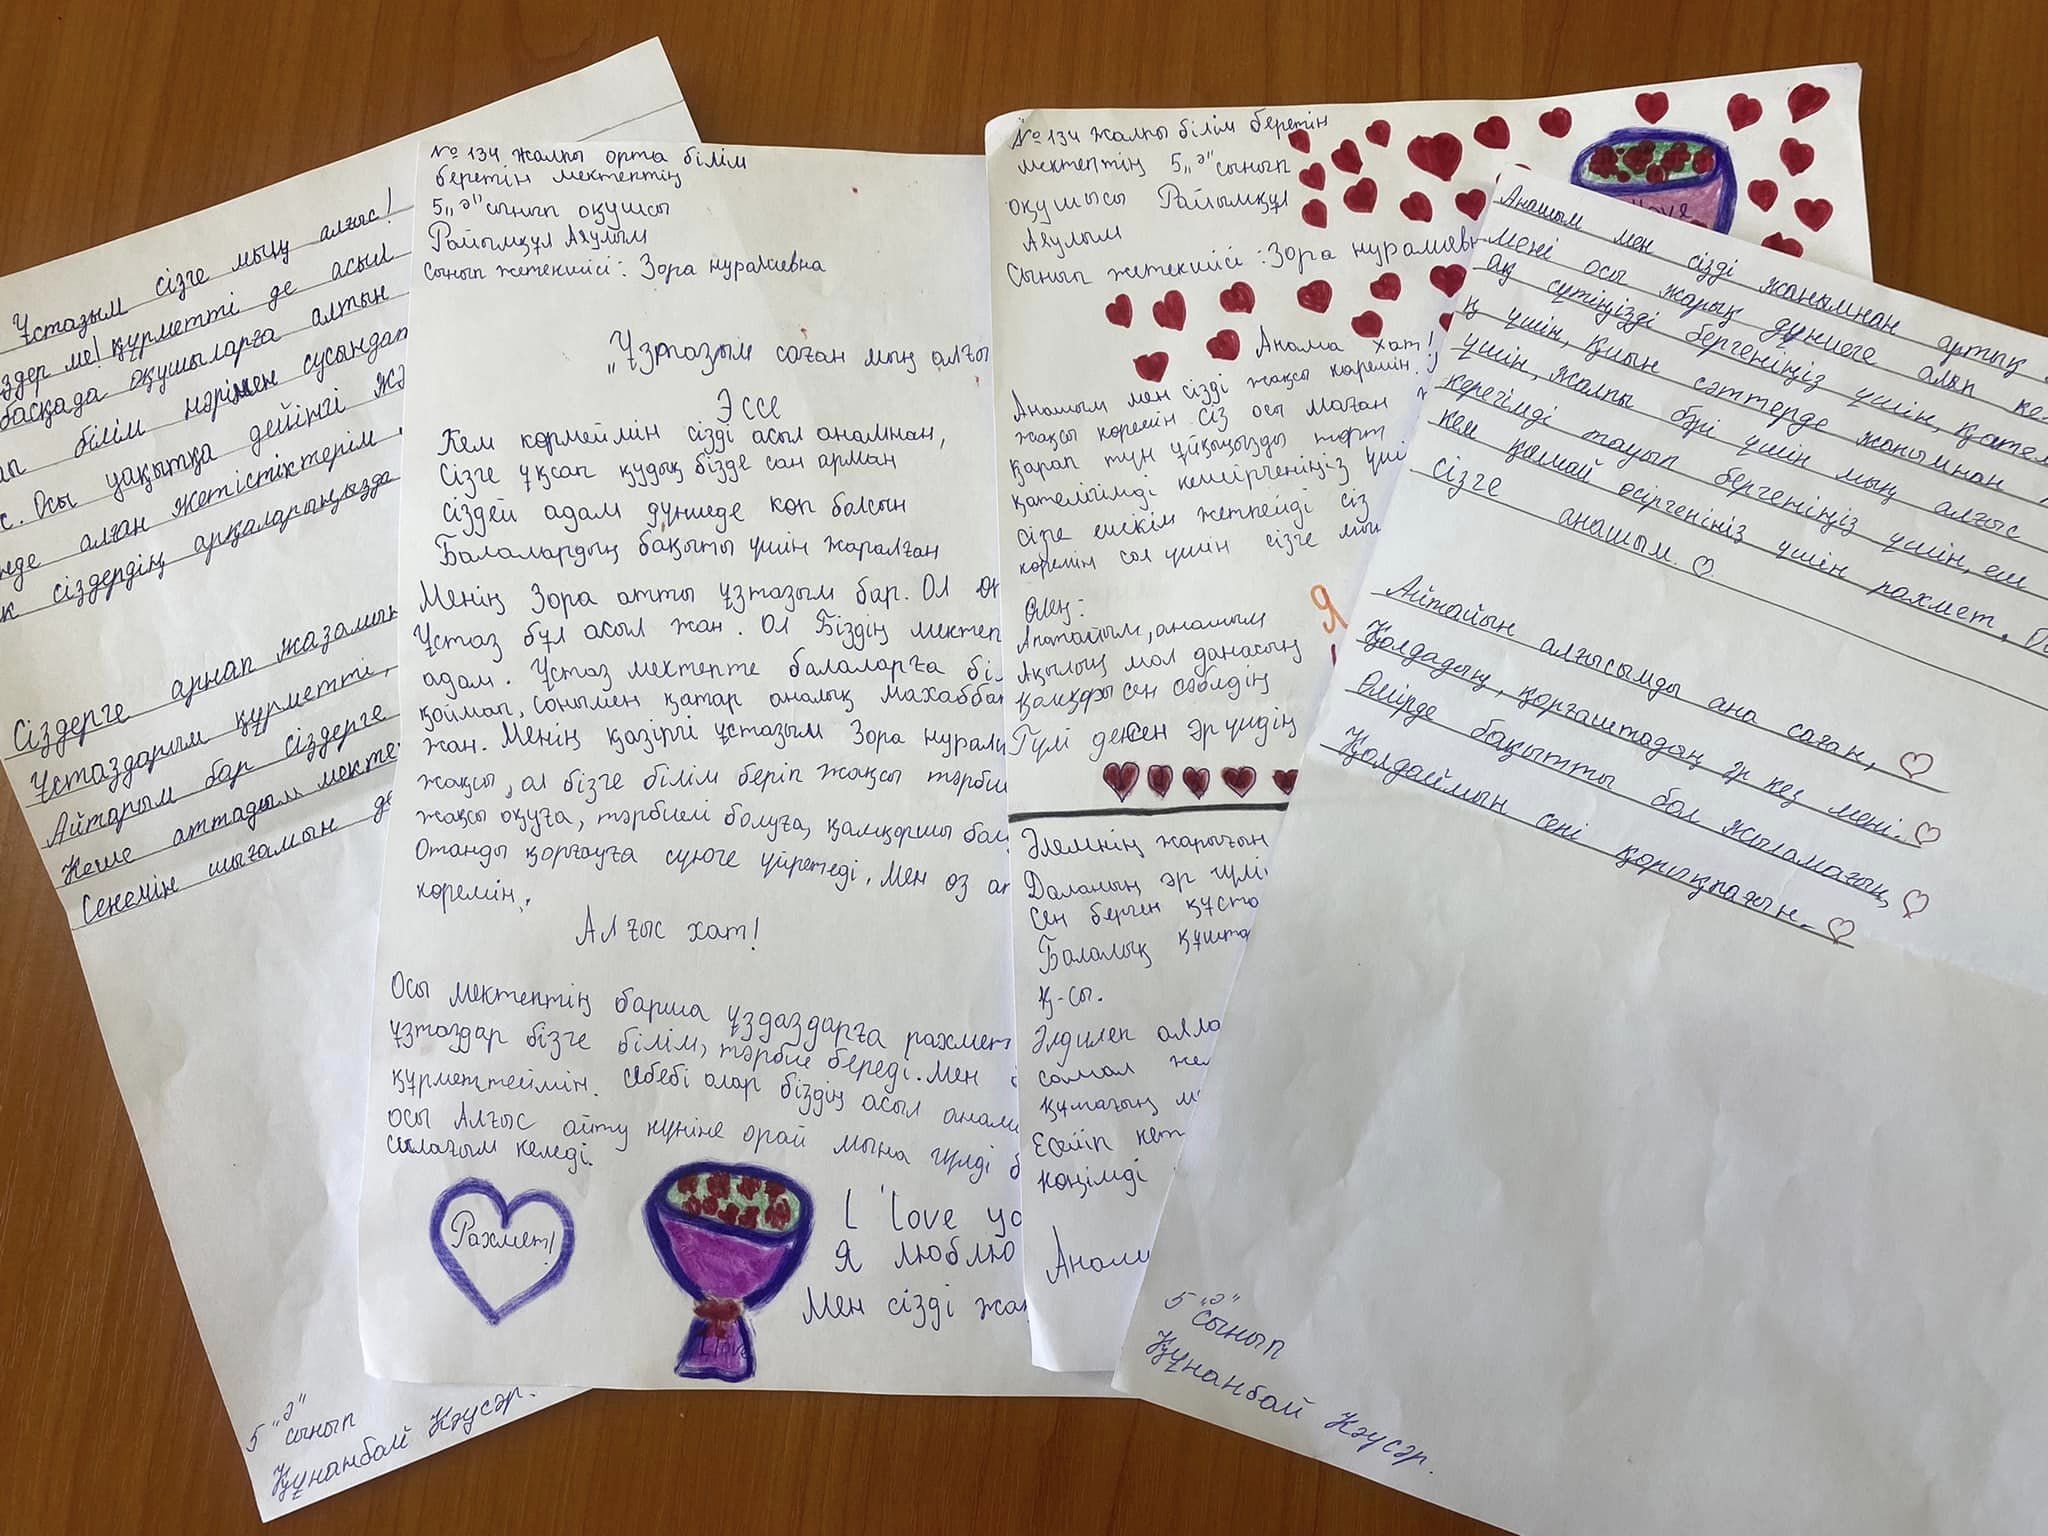 Ұстазым сізге мың алғыс!
ме! құрметті де асыл
басқада оқушыларға алтын
білім нәрімен сусындат
Осы уақытқа дейінгі
алған жетістіктерім
сіздердің арқаларыңызда
Сіздерге арнап жазамын
Ұстаздарым құрметті,
Айтарым бар сіздерге
Кеше аттадым мекте
Сенемін шығамын
5 "ә"
сынып
Құнанбай Кәусәр.
№ 134 жалпы орта білім
беретін мектептің
5 "ә" сынып оқушсы
Райымқұл Аяулым
Сынып жетекшісі: Зора нуралиевна
"Ұзтазым саған мың алғы
Эссе
Кем көрмеймін сізді асыл анамнан,
Сізге ұқсап қудық бізде сан арман
сіздей адам дүниеде көп болсын
Балалардың бақыты үшін жаралған
Менің Зора атты ұзтазым бар. Ол
Ұстаз бұл асыл жан. Ол Біздің мектеп
адам. Ұстаз мектепте балаларға біл
қоймап, сонымен қатар аналық махаббат
жан. Менің қазіргі ұстазым Зора нурали
жақсы, ол бізге білім беріп жақсы тәрбие
жақсы оқуға, тәрбиелі болуға, қамқоршы бол
Отанды қорғауға сүюге үйретеді. Мен өз
көремін.
Алғыс хат!
Осы мектептің барша ұздаздарға рахмет
ұзтаздар бізге білім, тәрбие береді. Мен
құрметтеймін. себебі олар біздің асыл анам
осы Алғыс айту күніне орай мына гүлді б
сыйлағым келеді.
Рахмет!
I love
I 'love yo
Я люблю
Мен сізді жа
№ 134 жалпы білім беретін
мектептің 5 "ә" сынып
оқушысы Райымқұл
Аяулым
Сынып жетекшісі: Зора нуралиевн
love
Анама хат!
Анашым мен сізді жақсы көремін.
жақсы көремін Сіз осы маған
қарап түн ұйқыңызды төрт
қателігімді кешіргеніңіз үші
сізге ешкім жетпейді сіз
көремін сол үшін сізге мы
Өлең:
Апатайым, анашым
Ақылың мол данасың
Қамқоры сен сәбидің
Гүлі де сен әр үйдің
Я
Әлемнің жарығын
Даланың әр гүлі
Сен берген құста
Балалық құшта
Қ-сы.
Әлдилеп алла
самал же
Құшағың
Есейіп кет
көңілді
Анаш
Анашым мен сізді жанымнан артық
Мені осы жарық дүниеге алып ке
ақ сүтіңізді бергеніңіз үшін, қател
үшін, қиын сәттерде жанымнан
үшін, жалпы бәрі үшін мың алғыс
керегімді тауып бергеніңіз үшін, еш
кем қылмай өсіргеніңіз үшін рахмет.
Сізге анашым.
Айтайын алғысымды ана саған,
Қолдадың, қорғаштадың әр кез мені.
Өмірде бақытты бол жыламағын,
Қолдаймын сені қорықпағын.
5 "ә"
сынып
Құнанбай Кәусәр.